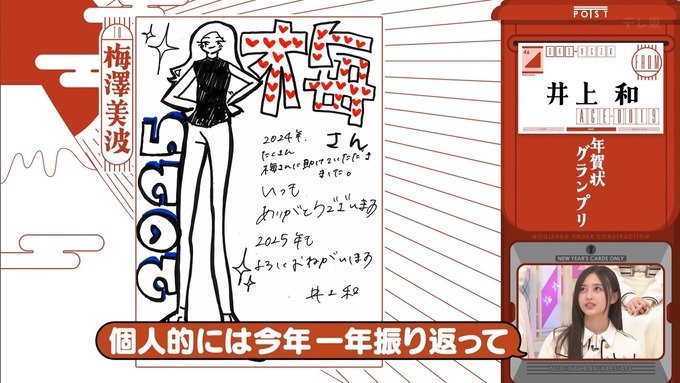 POST
テレ東
TO
梅澤美波
梅
さん
2024年、
たくさん
梅さんに助けていただき
ました。
いつも
ありがとうございます
2025年も
よろしくおねがいします
井上和
2025
46
FROM
井上 和
AGE-0019
年賀状
グランプリ
NOGIZAKA UNDER CONSTRUCTION
NEW YEAR'S CARDS ONLY
個人的には今年一年振り返って